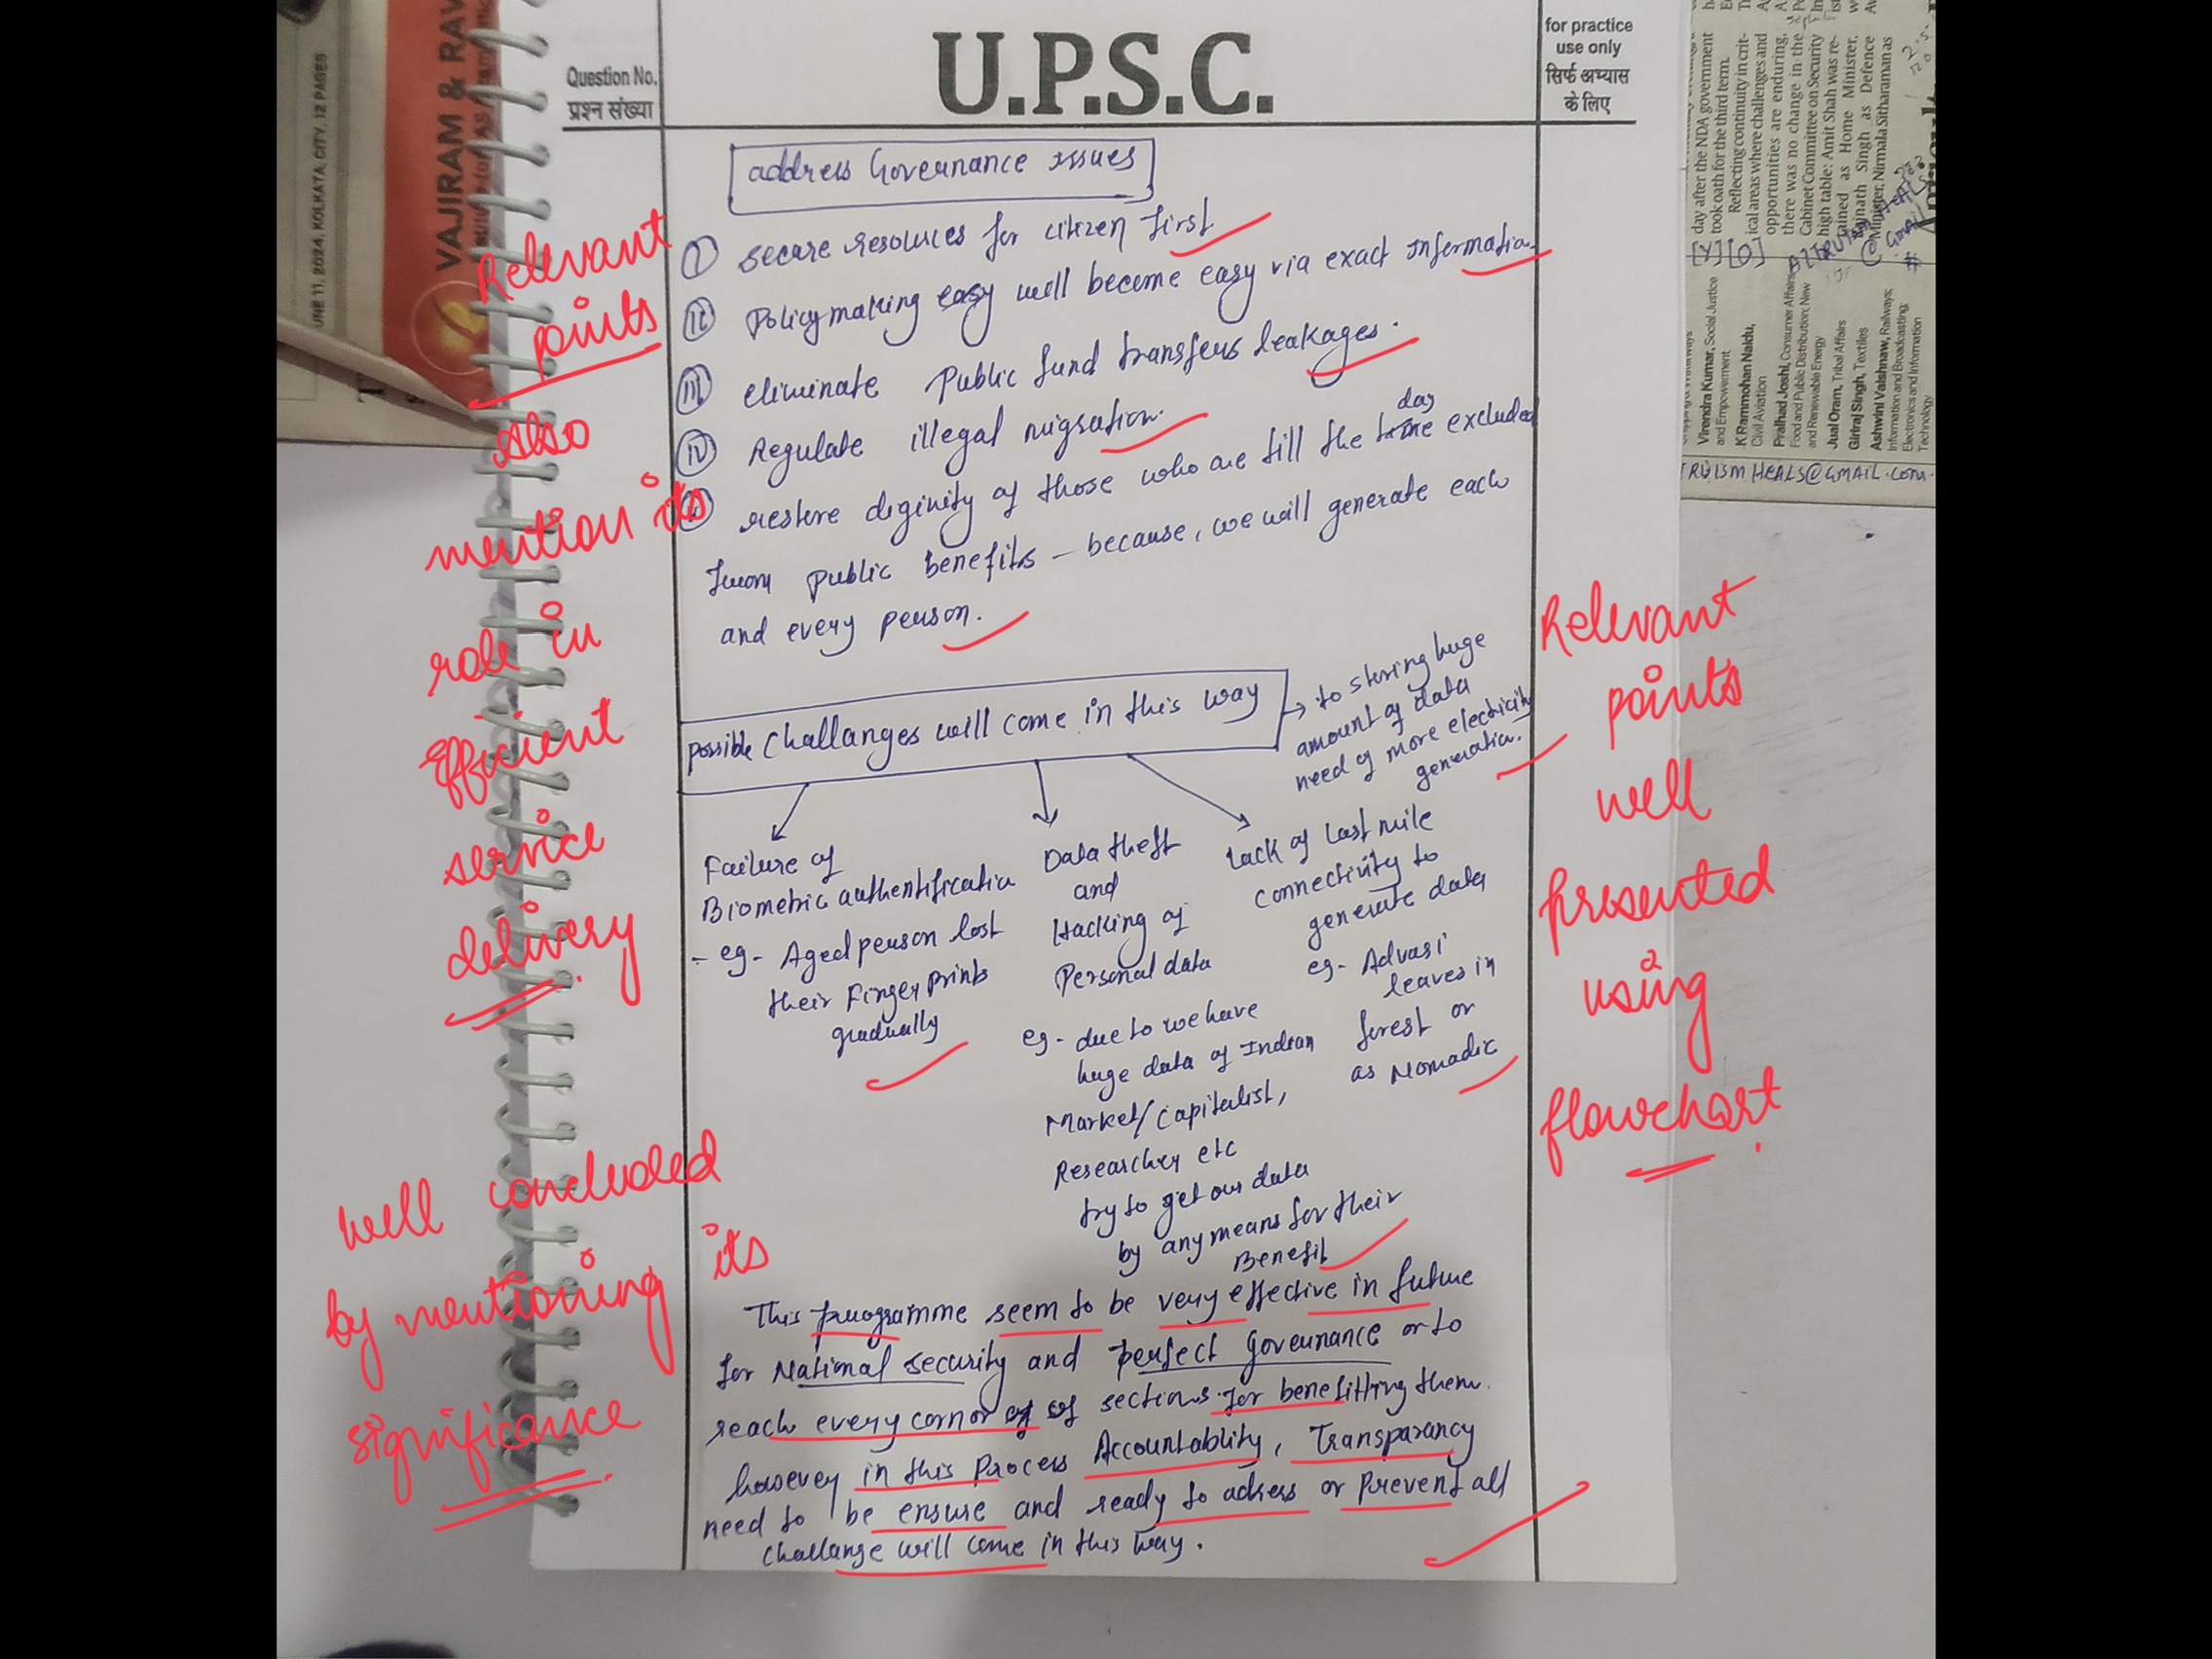 UNE 11, 2024, KOLKATA, CITY, 12 PAGES
VAJIRAM & RAV
Question No.
प्रश्न संख्या
U.P.S.C.
for practice
use only
सिर्फ अभ्यास
के लिए
address Governance issues
(I) secure resources for citizen first
(II) Policymaking easy will become easy via exact information.
(III) eliminate Public fund transfers leakages.
(IV) Regulate illegal migration.
restore diginity of those who are till the day excluded
from public benefits – because, we will generate each
and every person.
possible Challanges will come in this way
→ to storing huge
amount of data
need of more electricity
generation.
Failure of
Biometric authentification
- eg- Aged person lost
their Finger prints
gradually
Data theft
and
Hacking of
Personal data
eg- due to we have
huge data of Indian
Market/Capitalist,
Researcher etc
try to get our data
by any means for their
Benefit
Lack of Last mile
connectivity to
generate data
eg- Advasi
leaves in
forest or
as Nomadic
This programme seem to be very effective in future
for National security and perfect Governance or to
reach every cornor of of sections for benefitting them.
however in this Process Accountablity, Transparancy
need to be ensure and ready to adress or prevent all
challange will come in this way.
Relevant
points
Also
mention its
role in
efficient
service
delivery
well concluded
by mentioning its
significance
Relevant
points
well
presented
using
flowchart
day after the NDA government
took oath for the third term.
Reflecting continuity in crit-
ical areas where challenges and
opportunities are enduring,
there was no change in the
Cabinet Committee on Security
high table: Amit Shah was re-
tained as Home Minister,
Rajnath Singh as Defence
Minister, Nirmala Sitharaman as
Virendra Kumar, Social Justice
and Empowerment
K Rammohan Naidu,
Civil Aviation
Pralhad Joshi, Consumer Affairs,
Food and Public Distribution; New
and Renewable Energy
Jual Oram, Tribal Affairs
Giriraj Singh, Textiles
Ashwini Vaishnaw, Railways;
Information and Broadcasting;
Electronics and Information
Technology
TRUISM HEALS@GMAIL.COM.